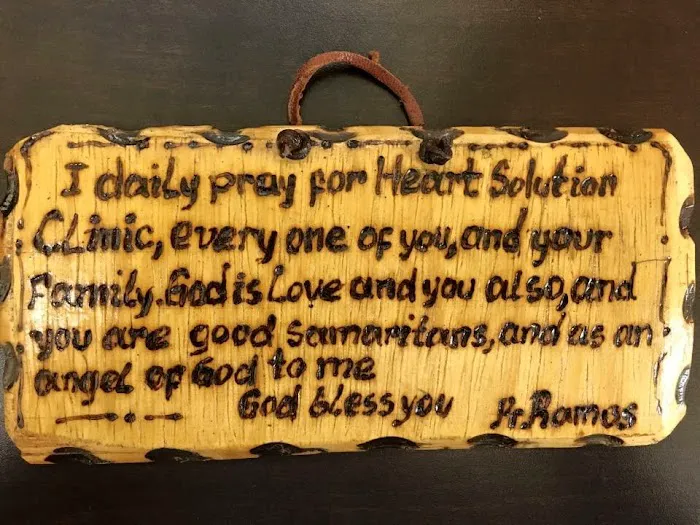 I daily pray for Heart Solution
Clinic, every one of you, and your
Family. God is Love and you also, and
you are good samaritans, and as an
angel of God to me
God bless you Pr. Ramos